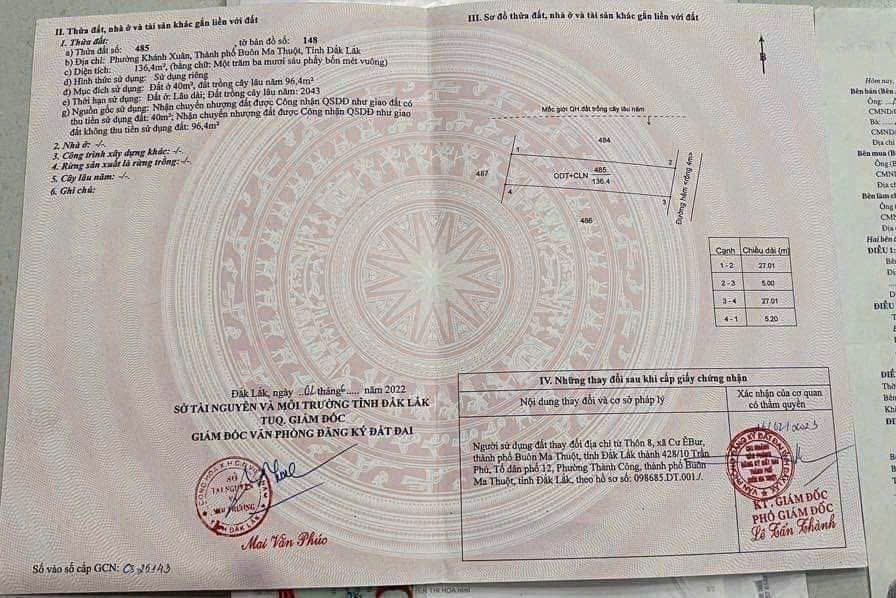 II. Thửa đất, nhà ở và tài sản khác gắn liền với đất
1. Thửa đất:
a) Thửa đất số: 485 tờ bản đồ số: 148
b) Địa chỉ: Phường Khánh Xuân, Thành phố Buôn Ma Thuột, Tỉnh Đắk Lắk
c) Diện tích: 136,4m², (bằng chữ: Một trăm ba mươi sáu phẩy bốn mét vuông)
d) Hình thức sử dụng: Sử dụng riêng
đ) Mục đích sử dụng: Đất ở 40m², đất trồng cây lâu năm 96,4m²
e) Thời hạn sử dụng: Đất ở: Lâu dài; Đất trồng cây lâu năm: 2043
g) Nguồn gốc sử dụng: Nhận chuyển nhượng đất được Công nhận QSDĐ như giao đất có
thu tiền sử dụng đất: 40m²; Nhận chuyển nhượng đất được Công nhận QSDĐ như giao
đất không thu tiền sử dụng đất: 96,4m²
2. Nhà ở: -/-
3. Công trình xây dựng khác: -/-
4. Rừng sản xuất là rừng trồng: -/-
5. Cây lâu năm: -/-
6. Ghi chú:
Đắk Lắk, ngày ..01 tháng 6 ..... năm 2022
SỞ TÀI NGUYÊN VÀ MÔI TRƯỜNG TỈNH ĐẮK LẮK
TUQ. GIÁM ĐỐC
GIÁM ĐỐC VĂN PHÒNG ĐĂNG KÝ ĐẤT ĐAI
SỞ
TÀI NGUYÊN
VÀ
MÔI TRƯỜNG
Mai Văn Phúc
Số vào sổ cấp GCN: CS 26143
III. Sơ đồ thửa đất, nhà ở và tài sản khác gắn liền với đất
B
Mốc giới QH đất trồng cây lâu năm
484
1
2
487
ODT+CLN 485
136.4
4
3
486
Đường hẻm <rộng 4m>
Cạnh Chiều dài (m)
1 - 2 27.01
2 - 3 5.00
3 - 4 27.01
4 - 1 5.20
IV. Những thay đổi sau khi cấp giấy chứng nhận
Nội dung thay đổi và cơ sở pháp lý
Xác nhận của cơ quan
có thẩm quyền
Người sử dụng đất thay đổi địa chỉ từ Thôn 8, xã Cư ÊBur,
thành phố Buôn Ma Thuột, tỉnh Đắk Lắk thành 428/10 Trần
Phú, Tổ dân phố 12, Phường Thành Công, thành phố Buôn
Ma Thuột, tỉnh Đắk Lắk, theo hồ sơ số: 098685.DT.001./.
KT. GIÁM ĐỐC
PHÓ GIÁM ĐỐC
Lê Tấn Thành
Hôm nay,
Bên bán (Bên
Ông:
CMND/
Bà:
CMND/
Địa chỉ
Bên mua (B
Ông (B
CMND
Địa c
Bên làm ch
Ông (
CMN
Địa
Hai bên
ĐIỀU 1:
Bên
ĐIỀU